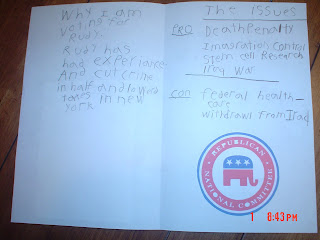 Why I am
voting for
Rudy.
Rudy has
had experiance
And cut crime
in half and lowerd
taxes in new
york
The issues
PRO DeathPenalty
Imagration Control
Stem cell Research
Iraq War
CON Federal health-
care
withdrawl from Iraq
REPUBLICAN
NATIONAL COMMITTEE
1 8:43 PM